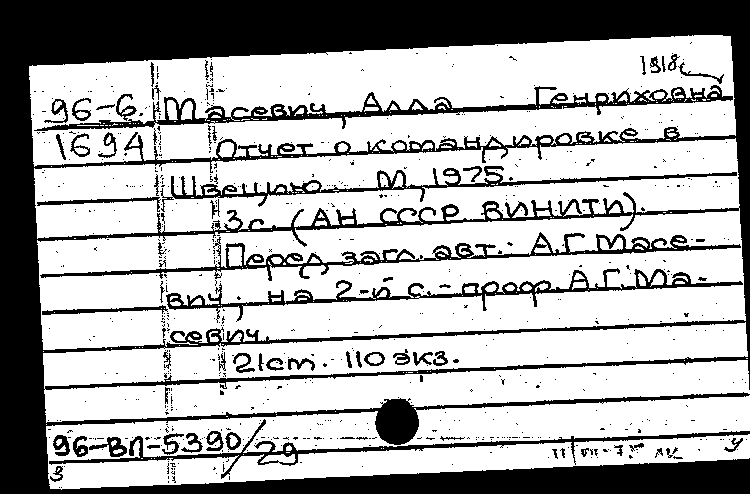 1918
96-6. Масевич, Алла Генриховна
169А Отчет о командировке в
Швецию. М., 1975.
3 с. (АН СССР. ВИНИТИ).
Перед загл. авт.: А.Г. Масе-
вич; на 2-й с. - проф. А.Г. Ма-
севич.
21 ст. 110 экз.
96-ВЛ-5390/29
3 у